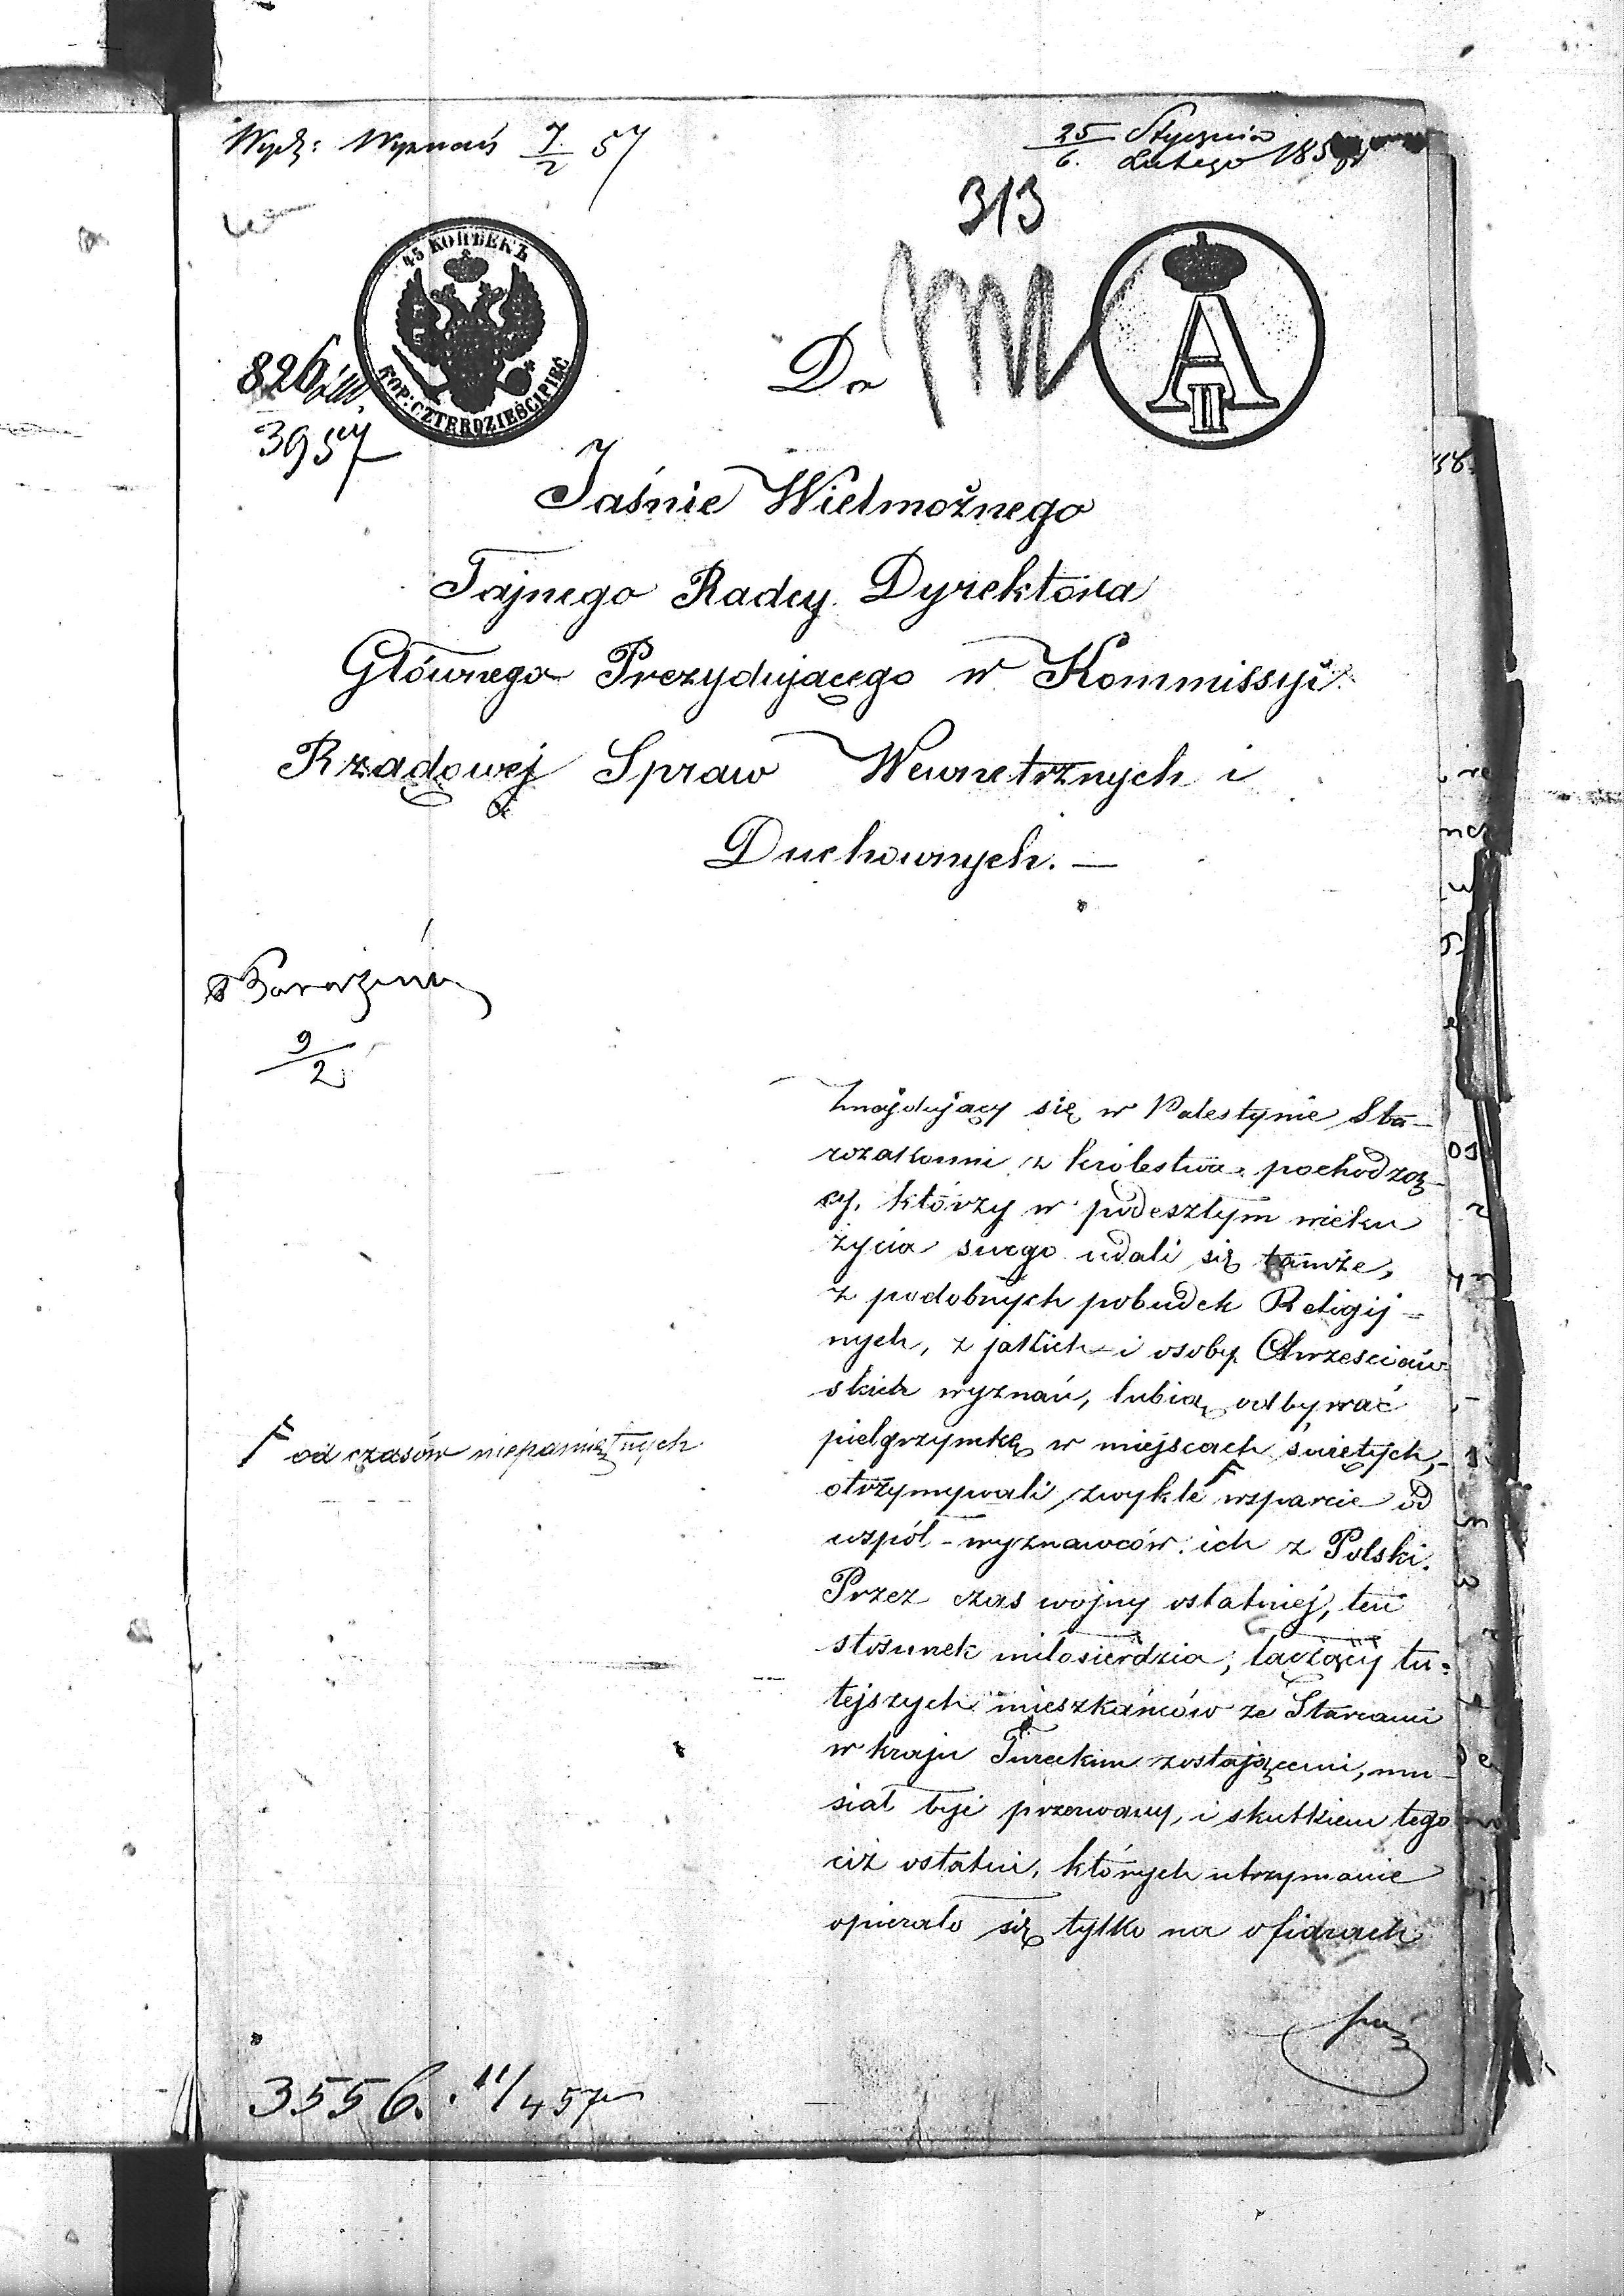 Wydz: Wyznań 7/2 57
25/6. Stycznia Lutego 185
313
45 КОПѢЕКЪ
KOP: CZTERDZIEŚCI PIĘĆ
A II
826
3957
Do
Jaśnie Wielmożnego
Tajnego Radcy Dyrektora
Głównego Prezydującego w Kommissyi
Rządowej Spraw Wewnetrznych i
Duchownych. —
9/2
Znajdujący się w Palestynie Sta-
rozakonni z Królestwa pochodzą-
cy, którzy w podeszłym wieku
życia swego udali się tamże,
z podobnych pobudek Religij-
nych, z jakich i osoby Chrześciań-
skich wyznań, lubią odbywać
pielgrzymkę w miejscach świętych,-
otrzymywali zwykle F wsparcie od
współ-wyznawców ich z Polski.
F od czasów niepamiętnych
Przez czas wojny ostatniej, ten
stosunek miłosierdzia, łączący tu-
tejszych mieszkańców ze Starcami
w kraju Tureckim zostającemi, mu-
siał być przerwany, i skutkiem tego
ciż ostatni, których utrzymanie
opierało się tylko na ofiarach
3556. 11/4 57